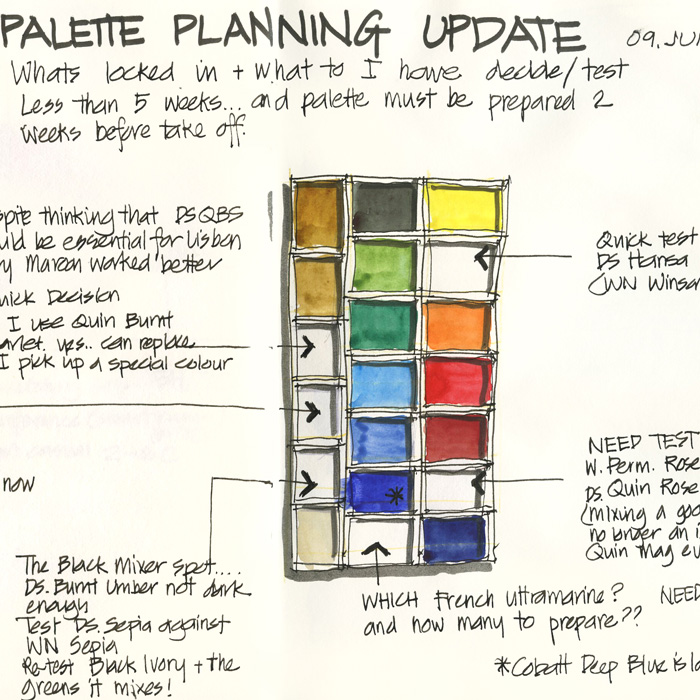 PALETTE PLANNING UPDATE
09. JU
Whats locked in + what to I have decide/test
Less than 5 weeks... and palette must be prepared 2
weeks before take off.
spite thinking that DS QBS
uld be essential for Lisbon
y Maroon worked better
uick Decision
I use Quin Burnt
arlet. yes.. can replace
I pick up a special colour
now
The Black Mixer spot....
Ds. Burnt Umber not dark
enough
Test Ds. Sepia against
WN Sepia
Re-test Black Ivory + the
greens it mixes!
Quick test
DS Hansa
(WN Winsor
NEED TEST
W. Perm. Rose
Ds. Quin Rose
(mixing a goo
no longer an i
Quin Mag ev
WHICH French Ultramarine?
and how many to prepare??
NEED
*Cobalt Deep Blue is lo